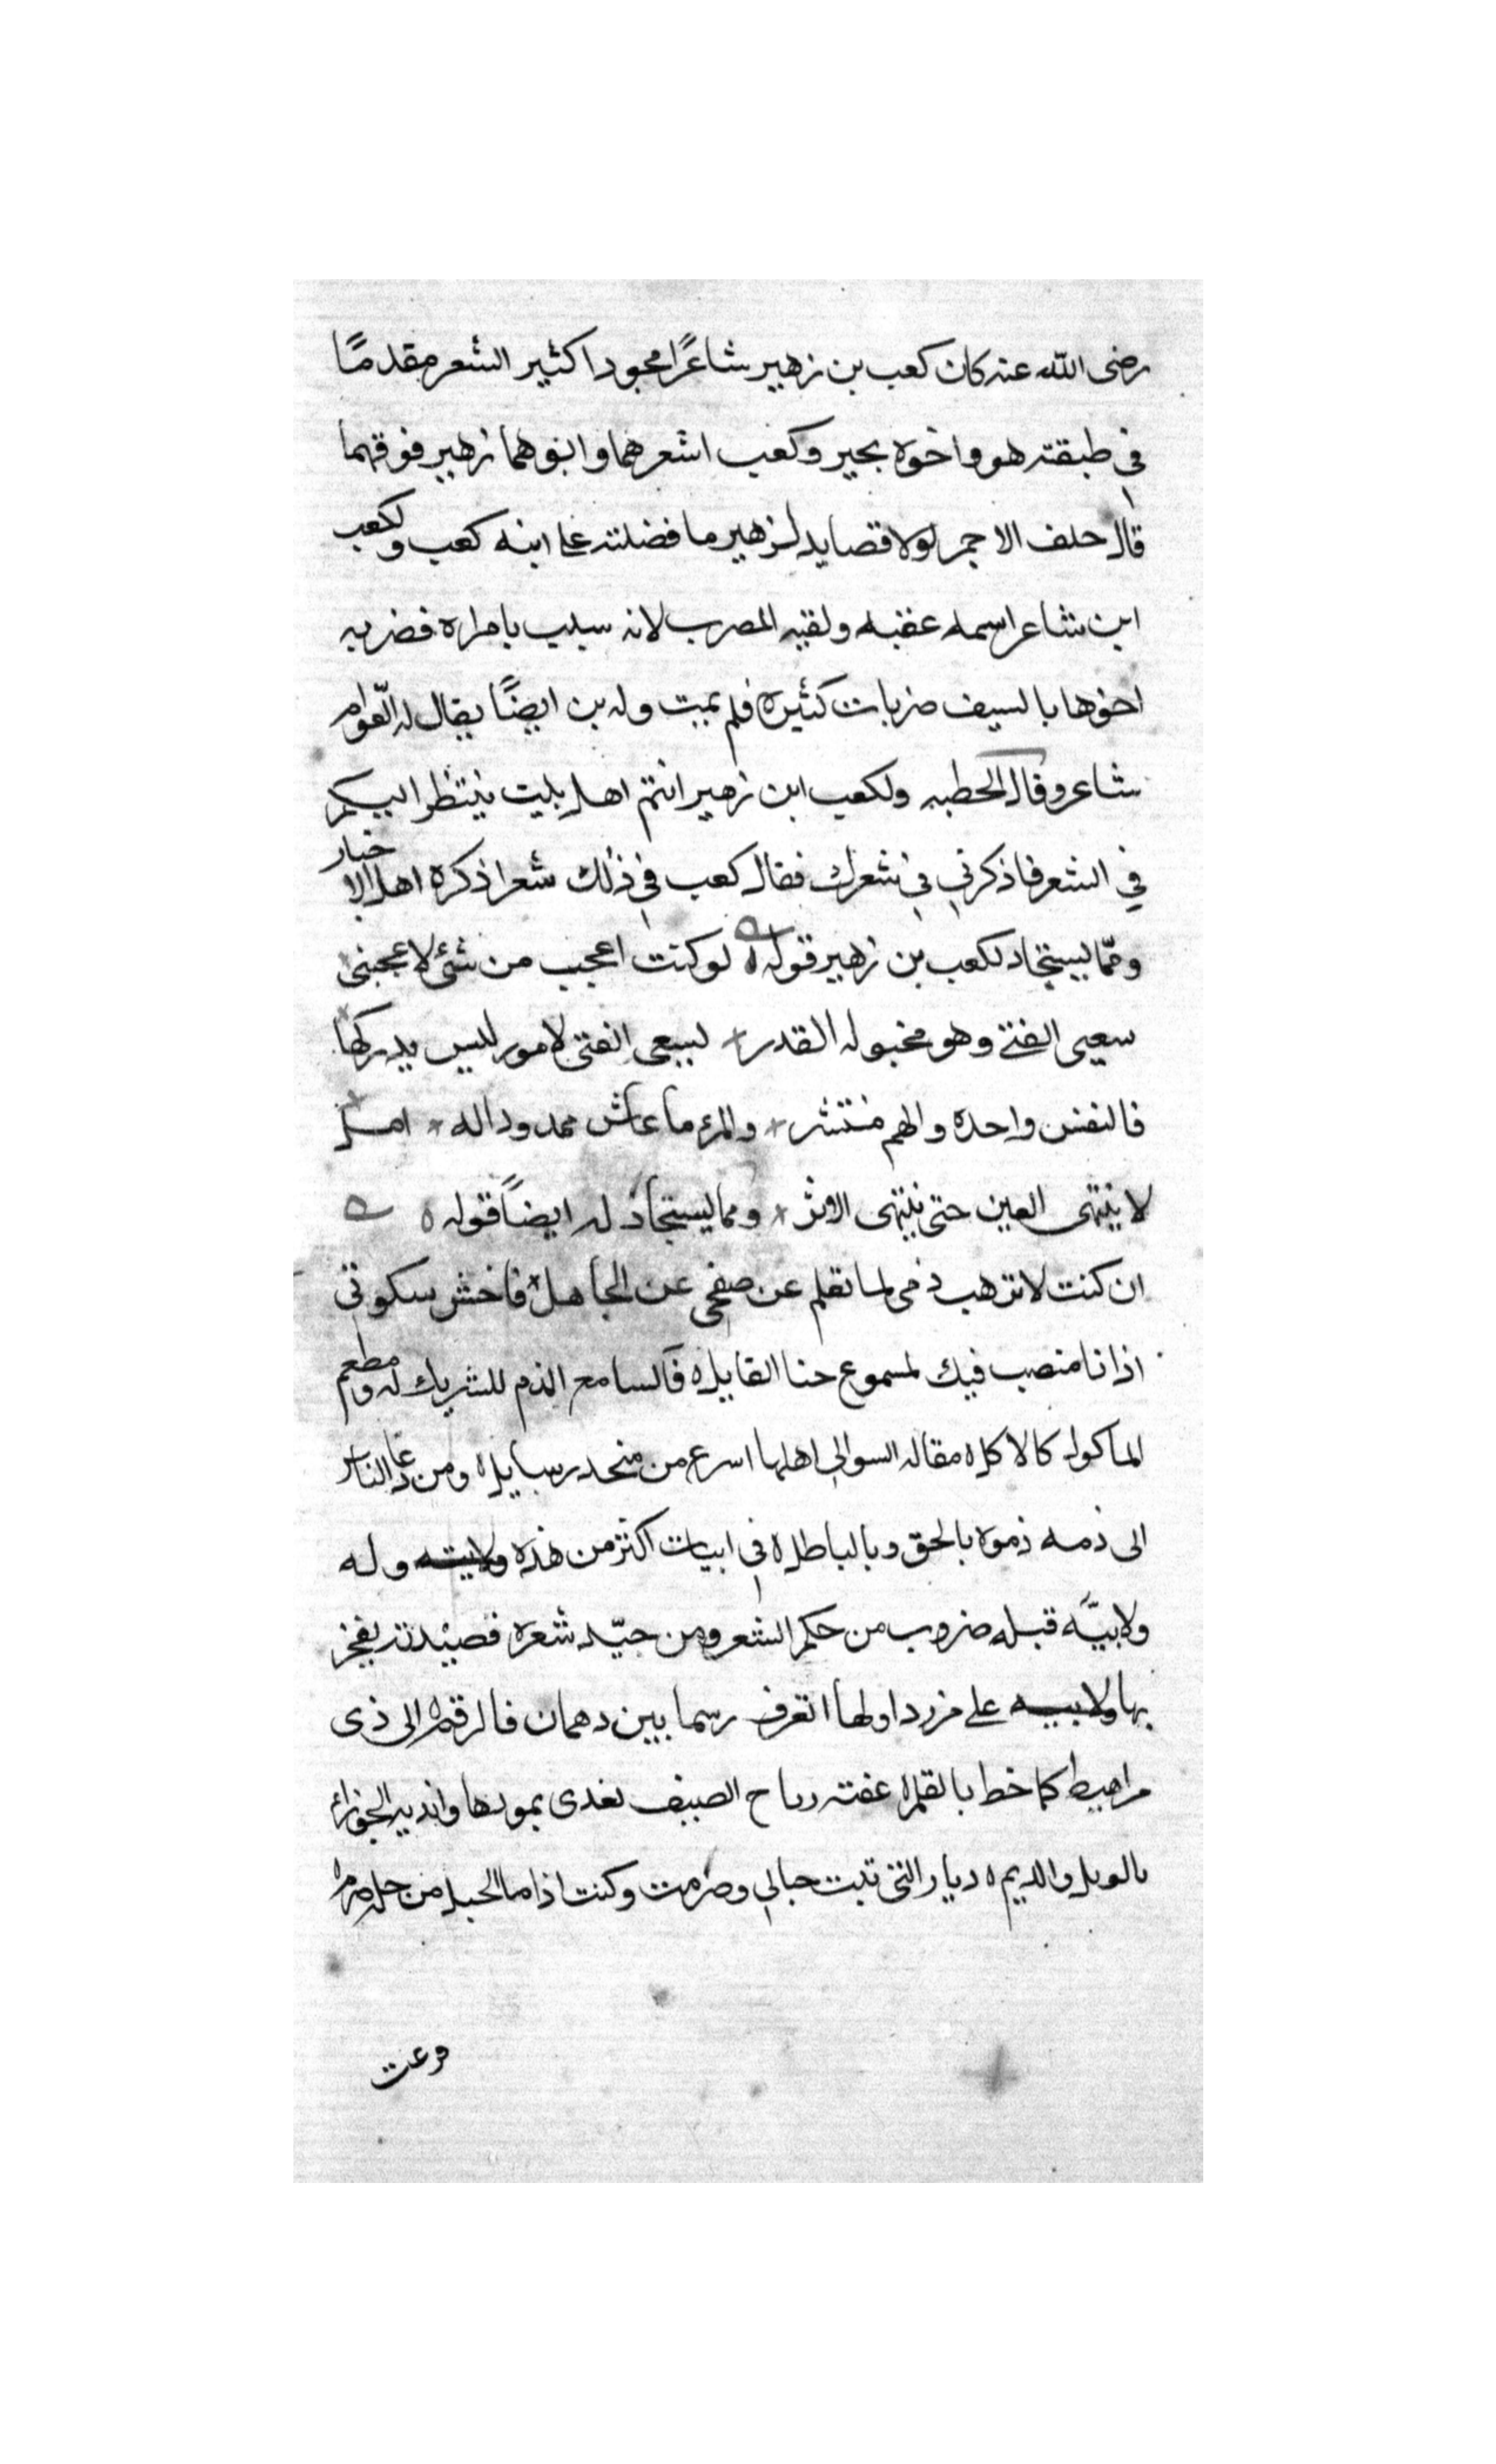 رضى الله عنه كان كعب بن زهير شاعرًا مجودا كثير الشعر مقدمًا
في طبقته هو واخوه بجير وكعب اشعرهما وابوهما زهير فوقهما
قال خلف الاحمر لولا قصايد لزهير ما فضلته على ابنه كعب ولكعب
ابن شاعر اسمه عقبه ولقبه المضرب لانه سبب بامراه فضربه
اخوها بالسيف ضربات كثيره فلم يمت وله بن ايضًا يقال له العّوام
شاعر وقال الحطيه ولكعب ابن زهير انتم اهل بيت ينتظر اليكم
في الشعر فاذكرني في شعرك فقال كعب في ذلك شعرا ذكره اهل الاخبار
وممّا يستجاد لكعب بن زهير قوله ه لو كنت اعجب من شئ لاعجبنى
سعيى الفتى وهو مخبوله القدر * يسعى الفتى لامور ليس يدركها
فالنفس واحده والهم منتشر * والمرء ما عاش ممدود اله * امل
لا ينتهى العين حتى ينتهى الاثر * ومما يستجاد له ايضًا قوله ه
ان كنت لا ترهب ذمى لما تعلم عن صفحى عن الجاهل ه فاخش سكوتى
اذ انا منصب فيك لمسموع خنا القايل ه فالسامع الذم للشريك له ومطعم
الماكول كالاكل ه مقاله السوالى اهلها اسرع من منحدر سايل ه ومن دعا الناس
الى ذمه ذموه بالحق وبالباطل ه في ابيات اكثر من هذه وله
ولابيّه قبله ضروب من حكم الشعر ومن جيّد شعره قصيدته يفخر
بها على مزرد اولها اتعرف رسما بين دهمان فالرقم ه الى ذى
مراهيط كما خط بالقلم ه عفته رياح الصيف بعدى بمورها واندبه الجوزاء
بالوبل والديم ه ديار التى تبت حبالي وصرمت وكنت اذا ما الحبل من خله صرم ه